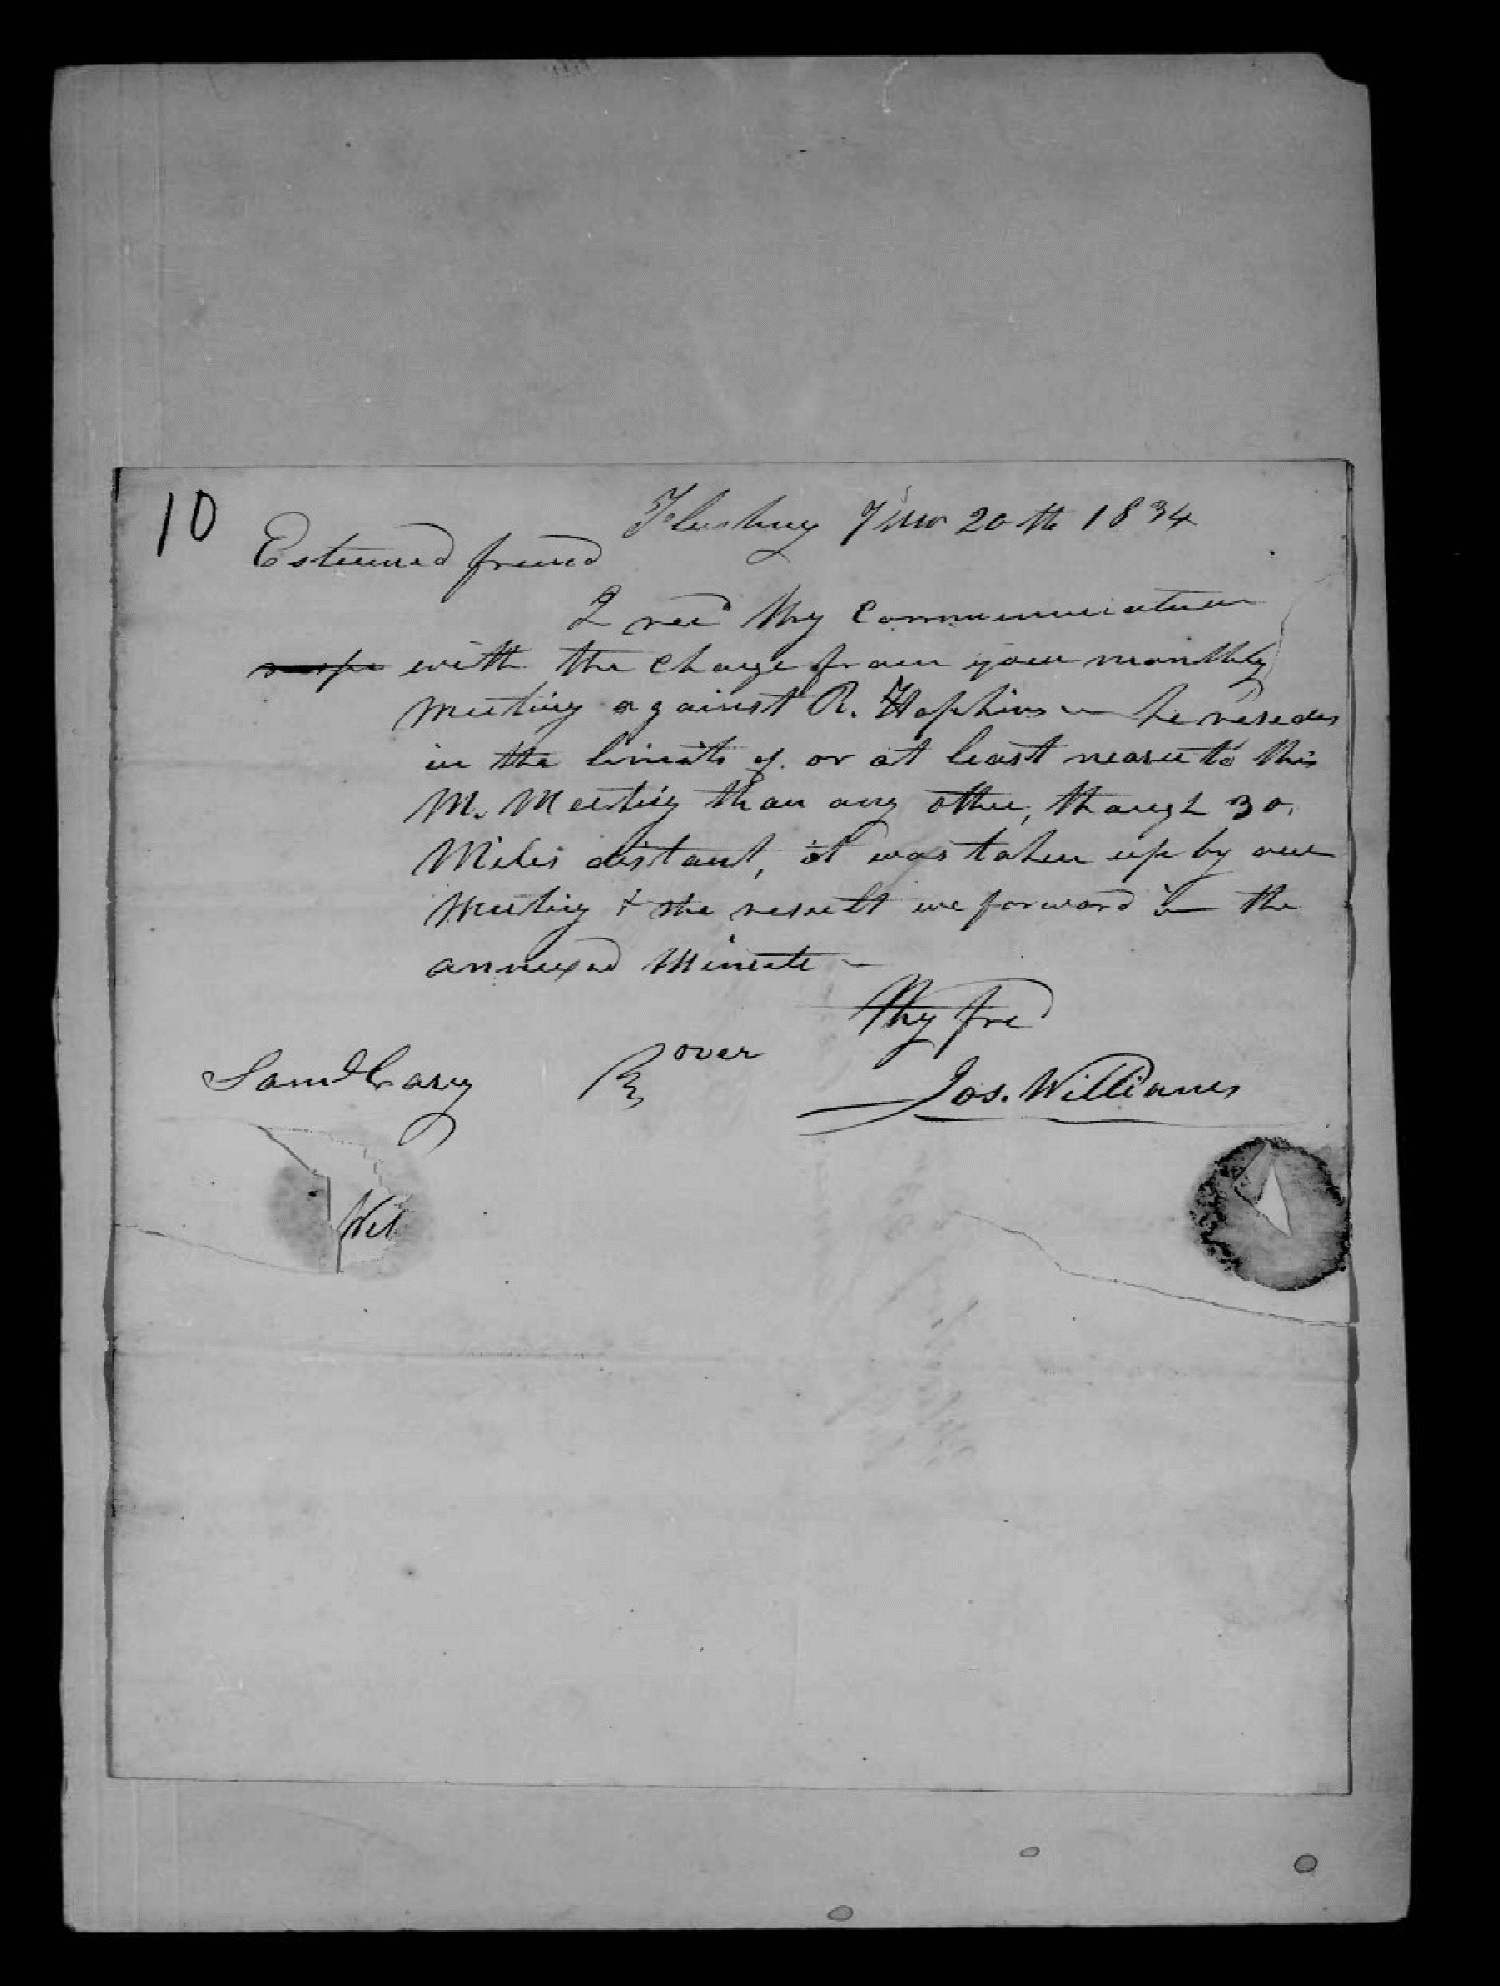 10
Flushing 7th mo 20th 1834
Esteemed friend
I recd thy Communication
with the Charge from your monthly
meeting against R. Hopkins — he resides
in the limits of. or at least nearer to this
M. Meeting than any other, though 30.
Miles distant, it was taken up by our
Meeting & the result we forward in the
annexed Minute —
Thy frd
over
Saml Cary
Jos. Williams